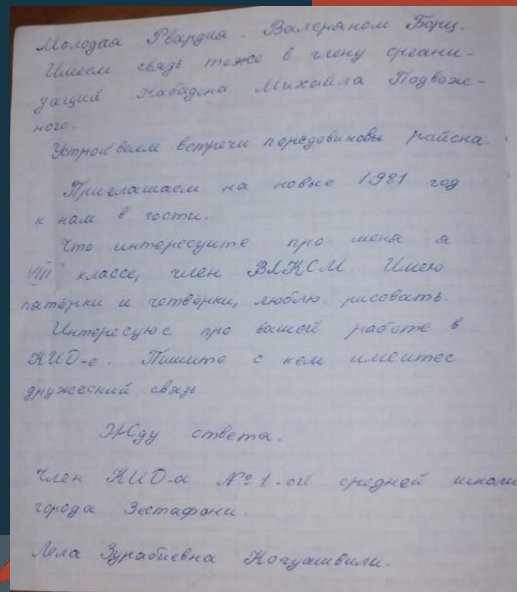 Молодая Гвардия. Валерианом Борц.
Имеем связь тоже в члену органи-
зации Михайла Подвож-
ного.
Устроиваем встречи передовиновы района.
Приглашаем на новые 1981 год
к нам в гости.
Что интересуйте про меня я
VIII классе, член ВЛКСМ. Имею
патёрки и четвёрки, люблю рисовать.
Интересуюс про вашей работе в
КИД-е. Пишите с кем имеитес
дружеский связь.
Жду ответа.
Член КИД-а №1-ой средней школи
города Зестафони.
Лела Зурабиевна Когуашвили.